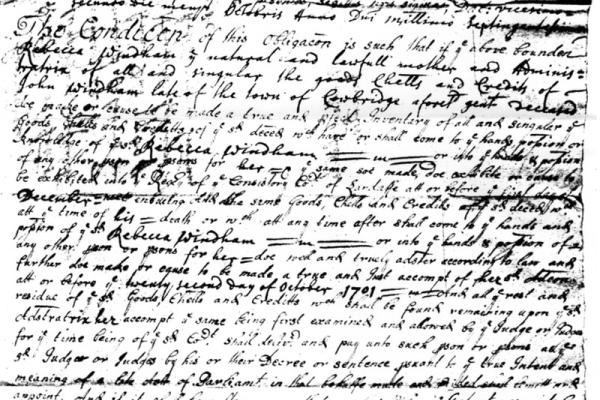 Octobris Anno Dni Millimo Septingentesimo
The Condicon of this Obligacon is such that if ye above bounden
Rebecca Windham ye natural and lawfull mother and Adminis-
tratrix of all and singular the goods Chells and Credits of
John Windham late of the town of Cowbridge aforesd gent deceased
doe make or cause to be made a true and Inventory of all and singular ye
Goods Chells and Creditts of ye sd deced wch have or shall come to ye hands possion or
knowledge of ye sd Rebecca Windham or into ye hands & possion
of any other pson or psons for her ye same soe made, doe exhibite or cause to
be exhibited into ye Regry of ye Consistory Cot of Landaffe att or before ye first day of
December next ensueing And the same Goods, Chells and Credits of ye sd deced wch
att ye time of his death or wch att any time after shall come to ye hands and
possion of ye sd Rebecca Windham or into ye hands & possion of
any other pson or psons for her doe well and truely adster according to law and
further doe make or cause to be made a true and Just accompt of her sd
att or before ye twenty second day of October 1701 And all ye rest and
residue of ye sd Goods, Chells and Creditts wch shall be found remaining upon ye sd
Adstratrix her accompt ye same being first examined and allowed by ye Judge or Judges
for ye time being of ye sd Cot shall deliver and pay unto such pson or psons as ye
sd Judge or Judges by his or their Decree or sentence psuant to ye true Intent and
meaning of a late Act of Parliamt in that behalfe made and